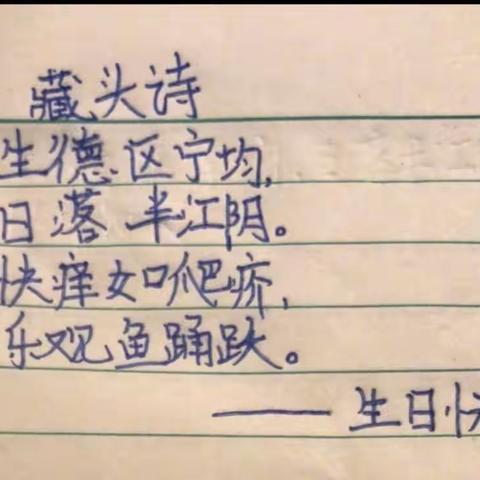 藏头诗
生德区宁均,
日落半江阴。
快痒如爬疥,
乐观鱼踊跃。
—— 生日快